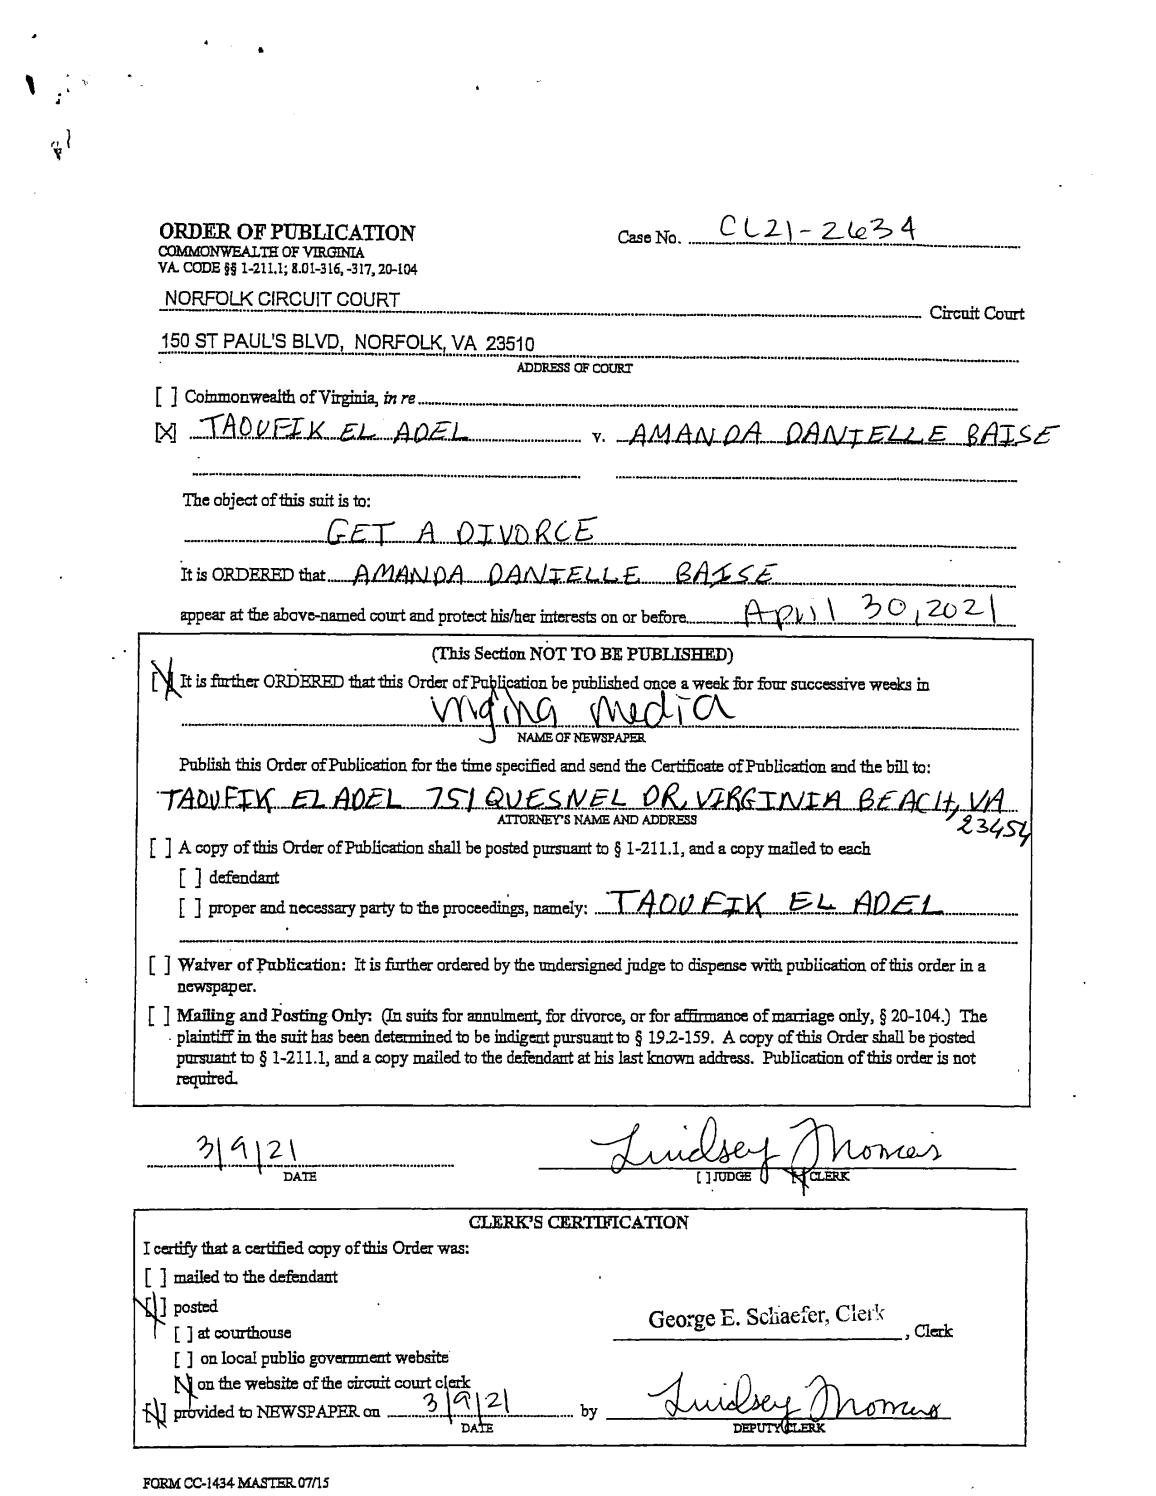 ORDER OF PUBLICATION
Case No. CL21-2634
COMMONWEALTH OF VIRGINIA
VA. CODE §§ 1-211.1; 8.01-316, -317, 20-104
NORFOLK CIRCUIT COURT Circuit Court
150 ST PAUL'S BLVD, NORFOLK, VA 23510
ADDRESS OF COURT
[ ] Commonwealth of Virginia, in re
[X] TAOUFIK EL ADEL v. AMANDA DANIELLE BAISE
The object of this suit is to:
GET A DIVORCE
It is ORDERED that AMANDA DANIELLE BAISE
appear at the above-named court and protect his/her interests on or before April 30, 2021
(This Section NOT TO BE PUBLISHED)
[X] It is further ORDERED that this Order of Publication be published once a week for four successive weeks in
media
NAME OF NEWSPAPER
Publish this Order of Publication for the time specified and send the Certificate of Publication and the bill to:
TAOUFIK EL ADEL 751 QUESNEL DR, VIRGINIA BEACH, VA
ATTORNEY'S NAME AND ADDRESS
23454
[ ] A copy of this Order of Publication shall be posted pursuant to § 1-211.1, and a copy mailed to each
[ ] defendant
[ ] proper and necessary party to the proceedings, namely: TAOUFIK EL ADEL
[ ] Waiver of Publication: It is further ordered by the undersigned judge to dispense with publication of this order in a
newspaper.
[ ] Mailing and Posting Only: (In suits for annulment, for divorce, or for affirmance of marriage only, § 20-104.) The
plaintiff in the suit has been determined to be indigent pursuant to § 19.2-159. A copy of this Order shall be posted
pursuant to § 1-211.1, and a copy mailed to the defendant at his last known address. Publication of this order is not
required.
3/9/21 Lindsey Thomas
DATE [ ] JUDGE [X] CLERK
CLERK'S CERTIFICATION
I certify that a certified copy of this Order was:
[ ] mailed to the defendant
[X] posted
George E. Schaefer, Clerk
[ ] at courthouse , Clerk
[ ] on local public government website
[X] on the website of the circuit court clerk
[X] provided to NEWSPAPER on 3/9/21 by Lindsey Thomas
DATE DEPUTY CLERK
FORM CC-1434 MASTER 07/15